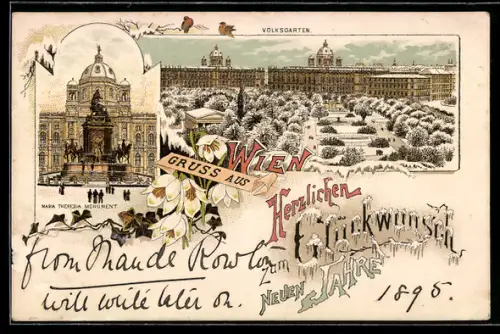 VOLKSGARTEN.
MARIA THERESIA MONUMENT.
GRUSS AUS
WIEN
Herzlichen
Glückwunsch
zum
NEUEN JAHRE
from Maude
will write later on.